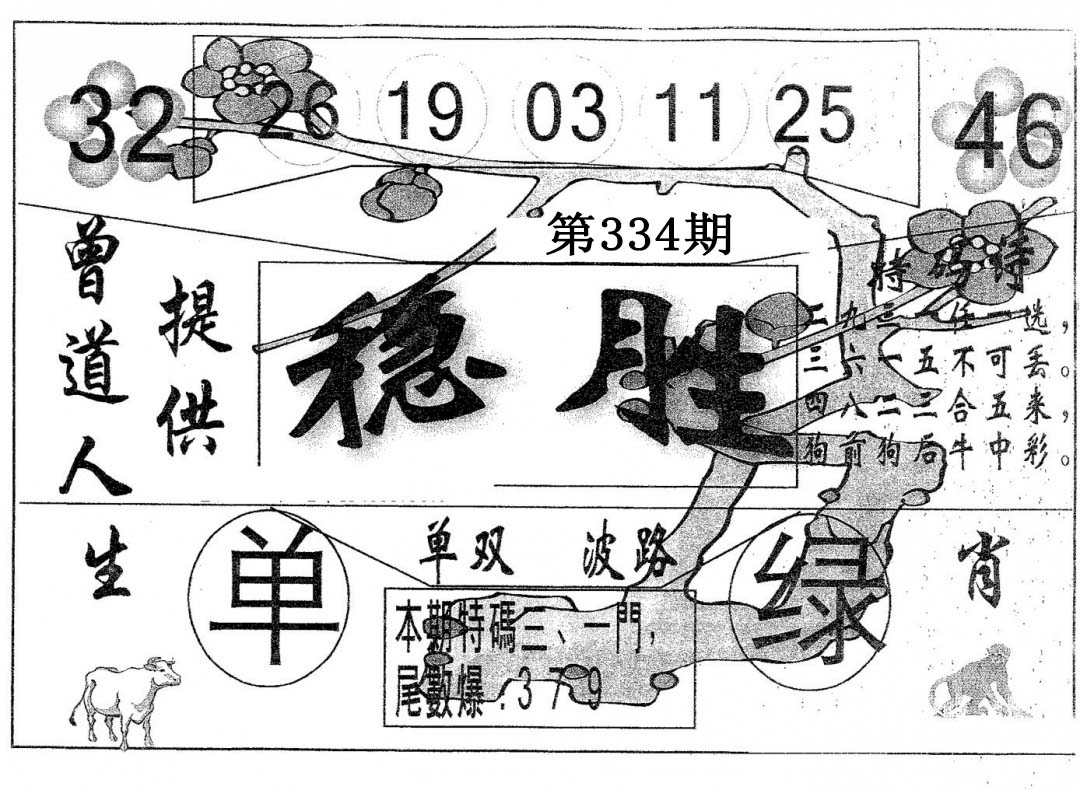 32 26 19 03 11 25 46
第334期
曾道人
提供
稳胜
特码诗
二九三一任一选，
三六一五不可丢。
四八二二合五来，
狗前狗后牛中彩。
生肖
单双 波路
单 绿
本期特碼三、一門，
尾數爆：379